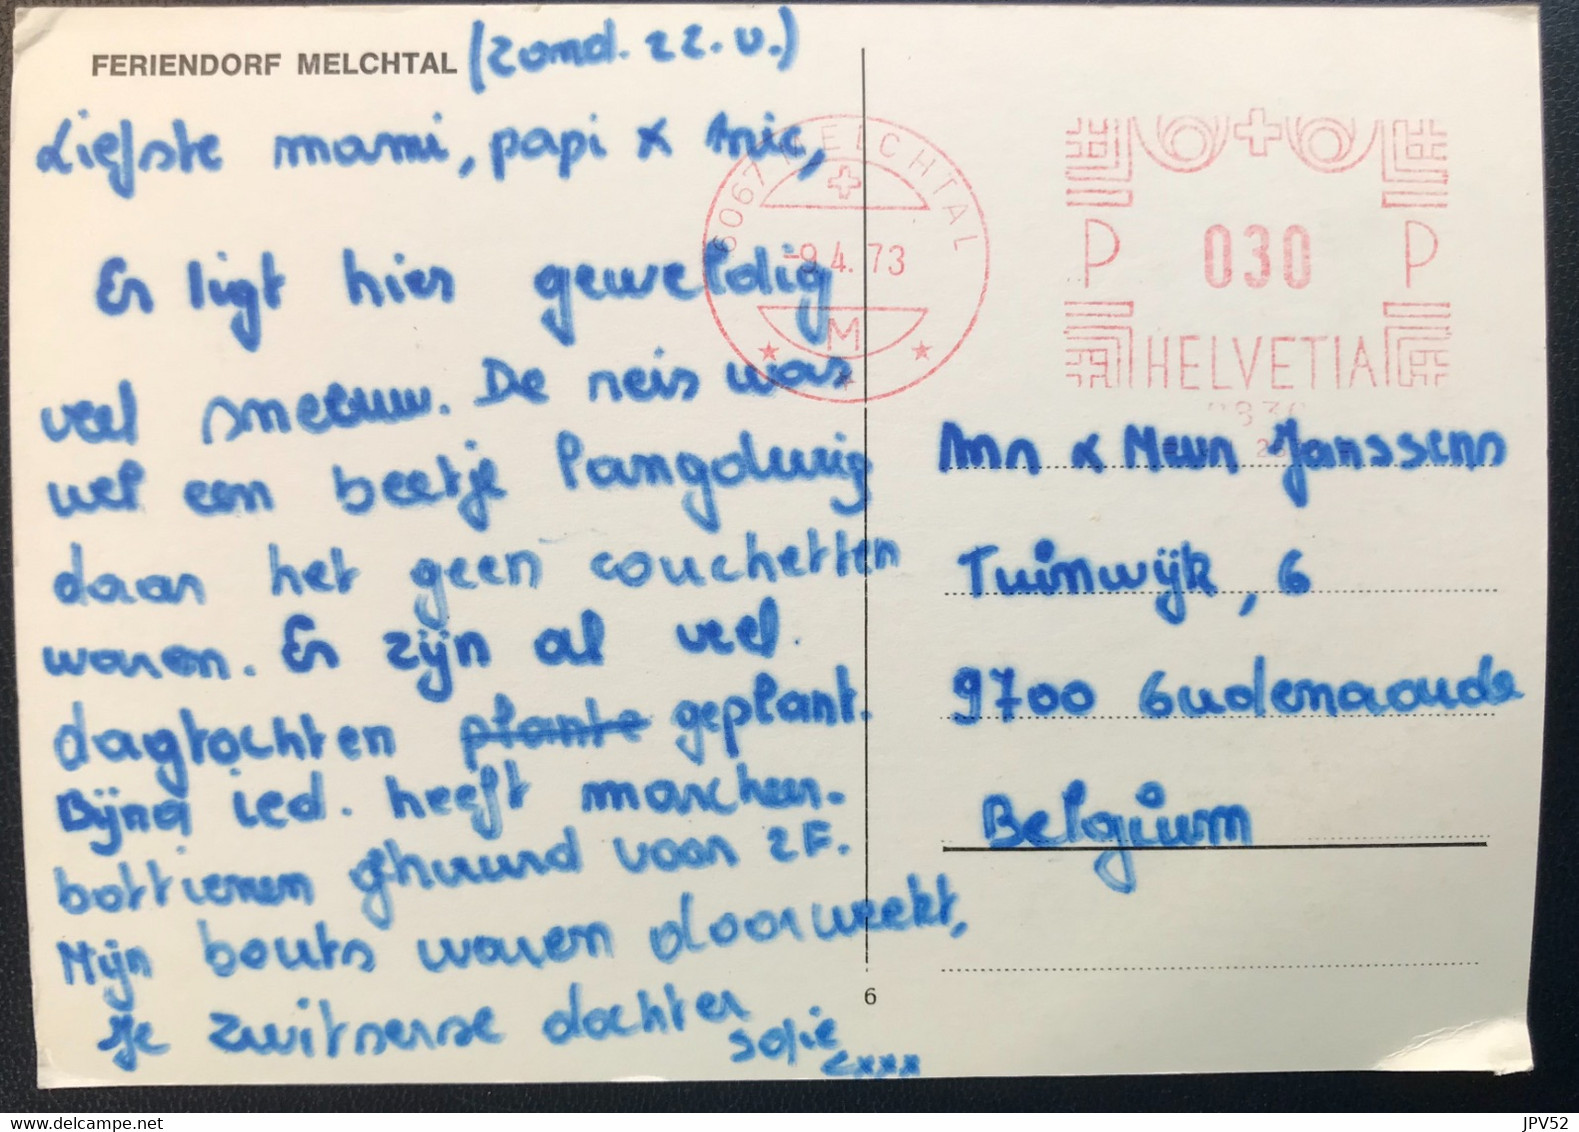 FERIENDORF MELCHTAL (zond. 22.u.)
Liefste mami, papi & Mic,
Er ligt hier geweldig
veel sneeuw. De reis was
wel een beetje langdurig
daar het geen couchetten
waren. Er zijn al veel
dagtochten plante geplant.
Bijna ied. heeft marcheer-
bottienen gehuurd voor 2F.
Mijn bouts waren doorweekt,
Je Zwitserse dochter
Sofie
xxx
6067 MELCHTAL
-9.4.73
M
P 030 P
HELVETIA
Mr & Mevr Janssens
Tuinwijk, 6
9700 Oudenaarde
Belgium
6
www.delcampe.net
JPV52